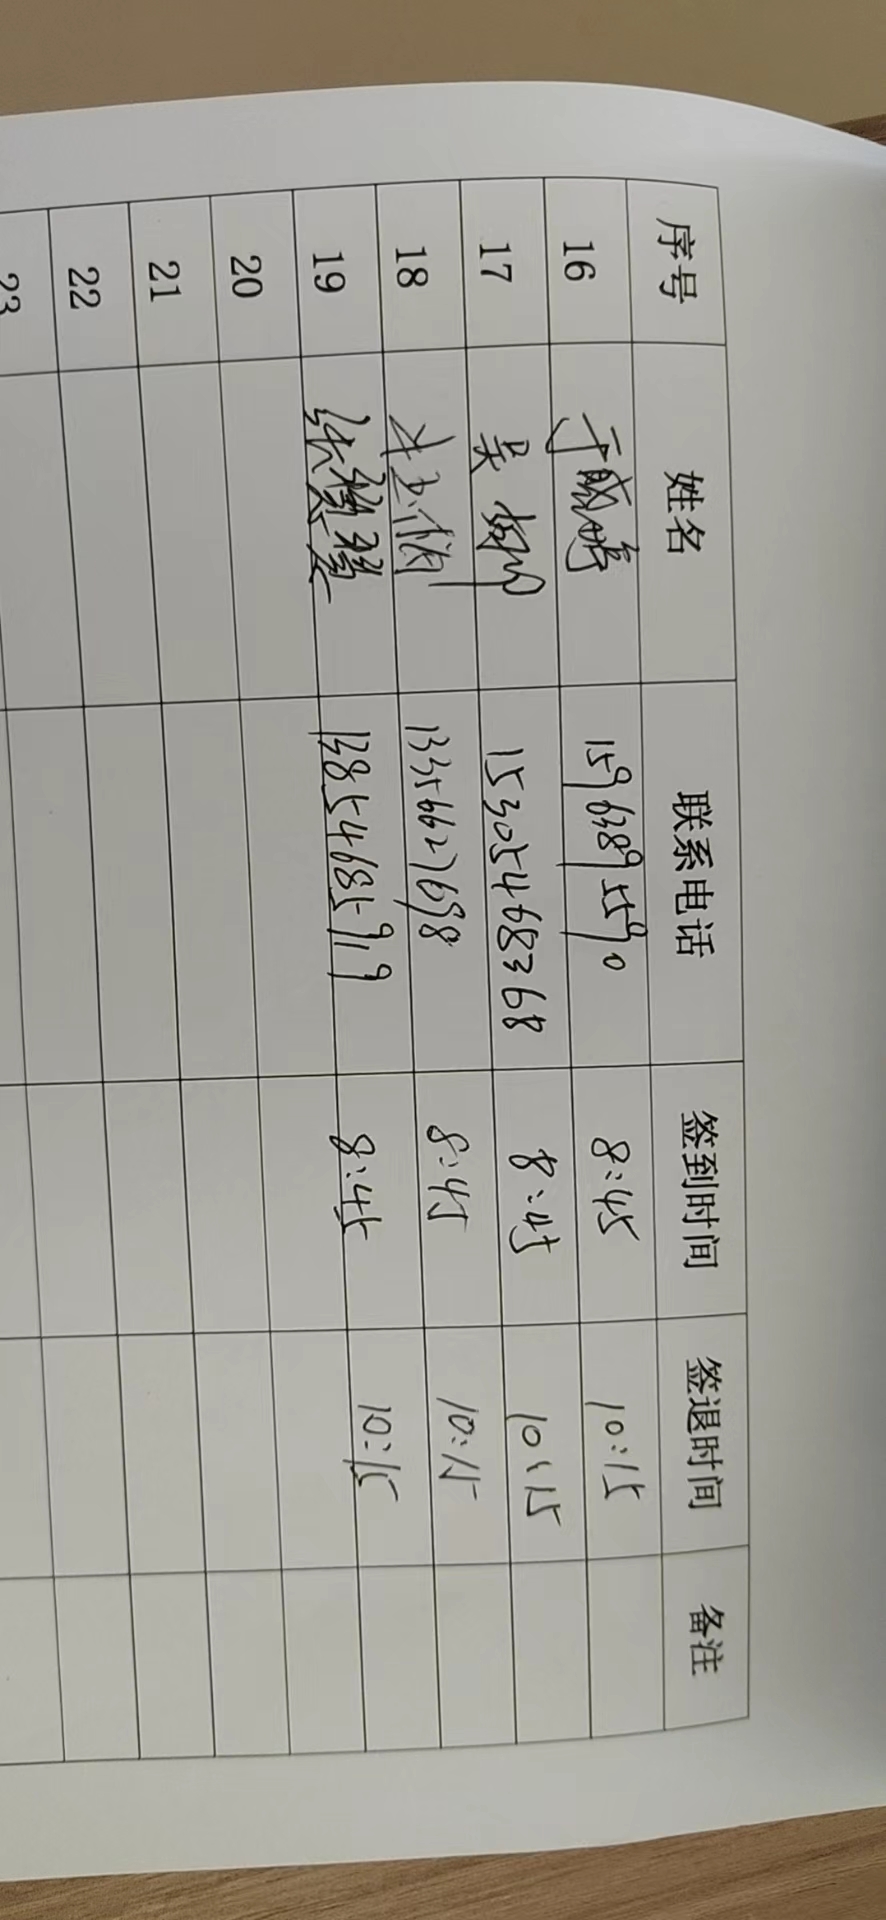 序号 姓名 联系电话 签到时间 签退时间 备注
16 于威 15963895590 8:45 10:15
17 吴 15305468368 8:45 10:15
18 13356627698 8:45 10:15
19 张 13854685919 8:45 10:15
20
21
22
23